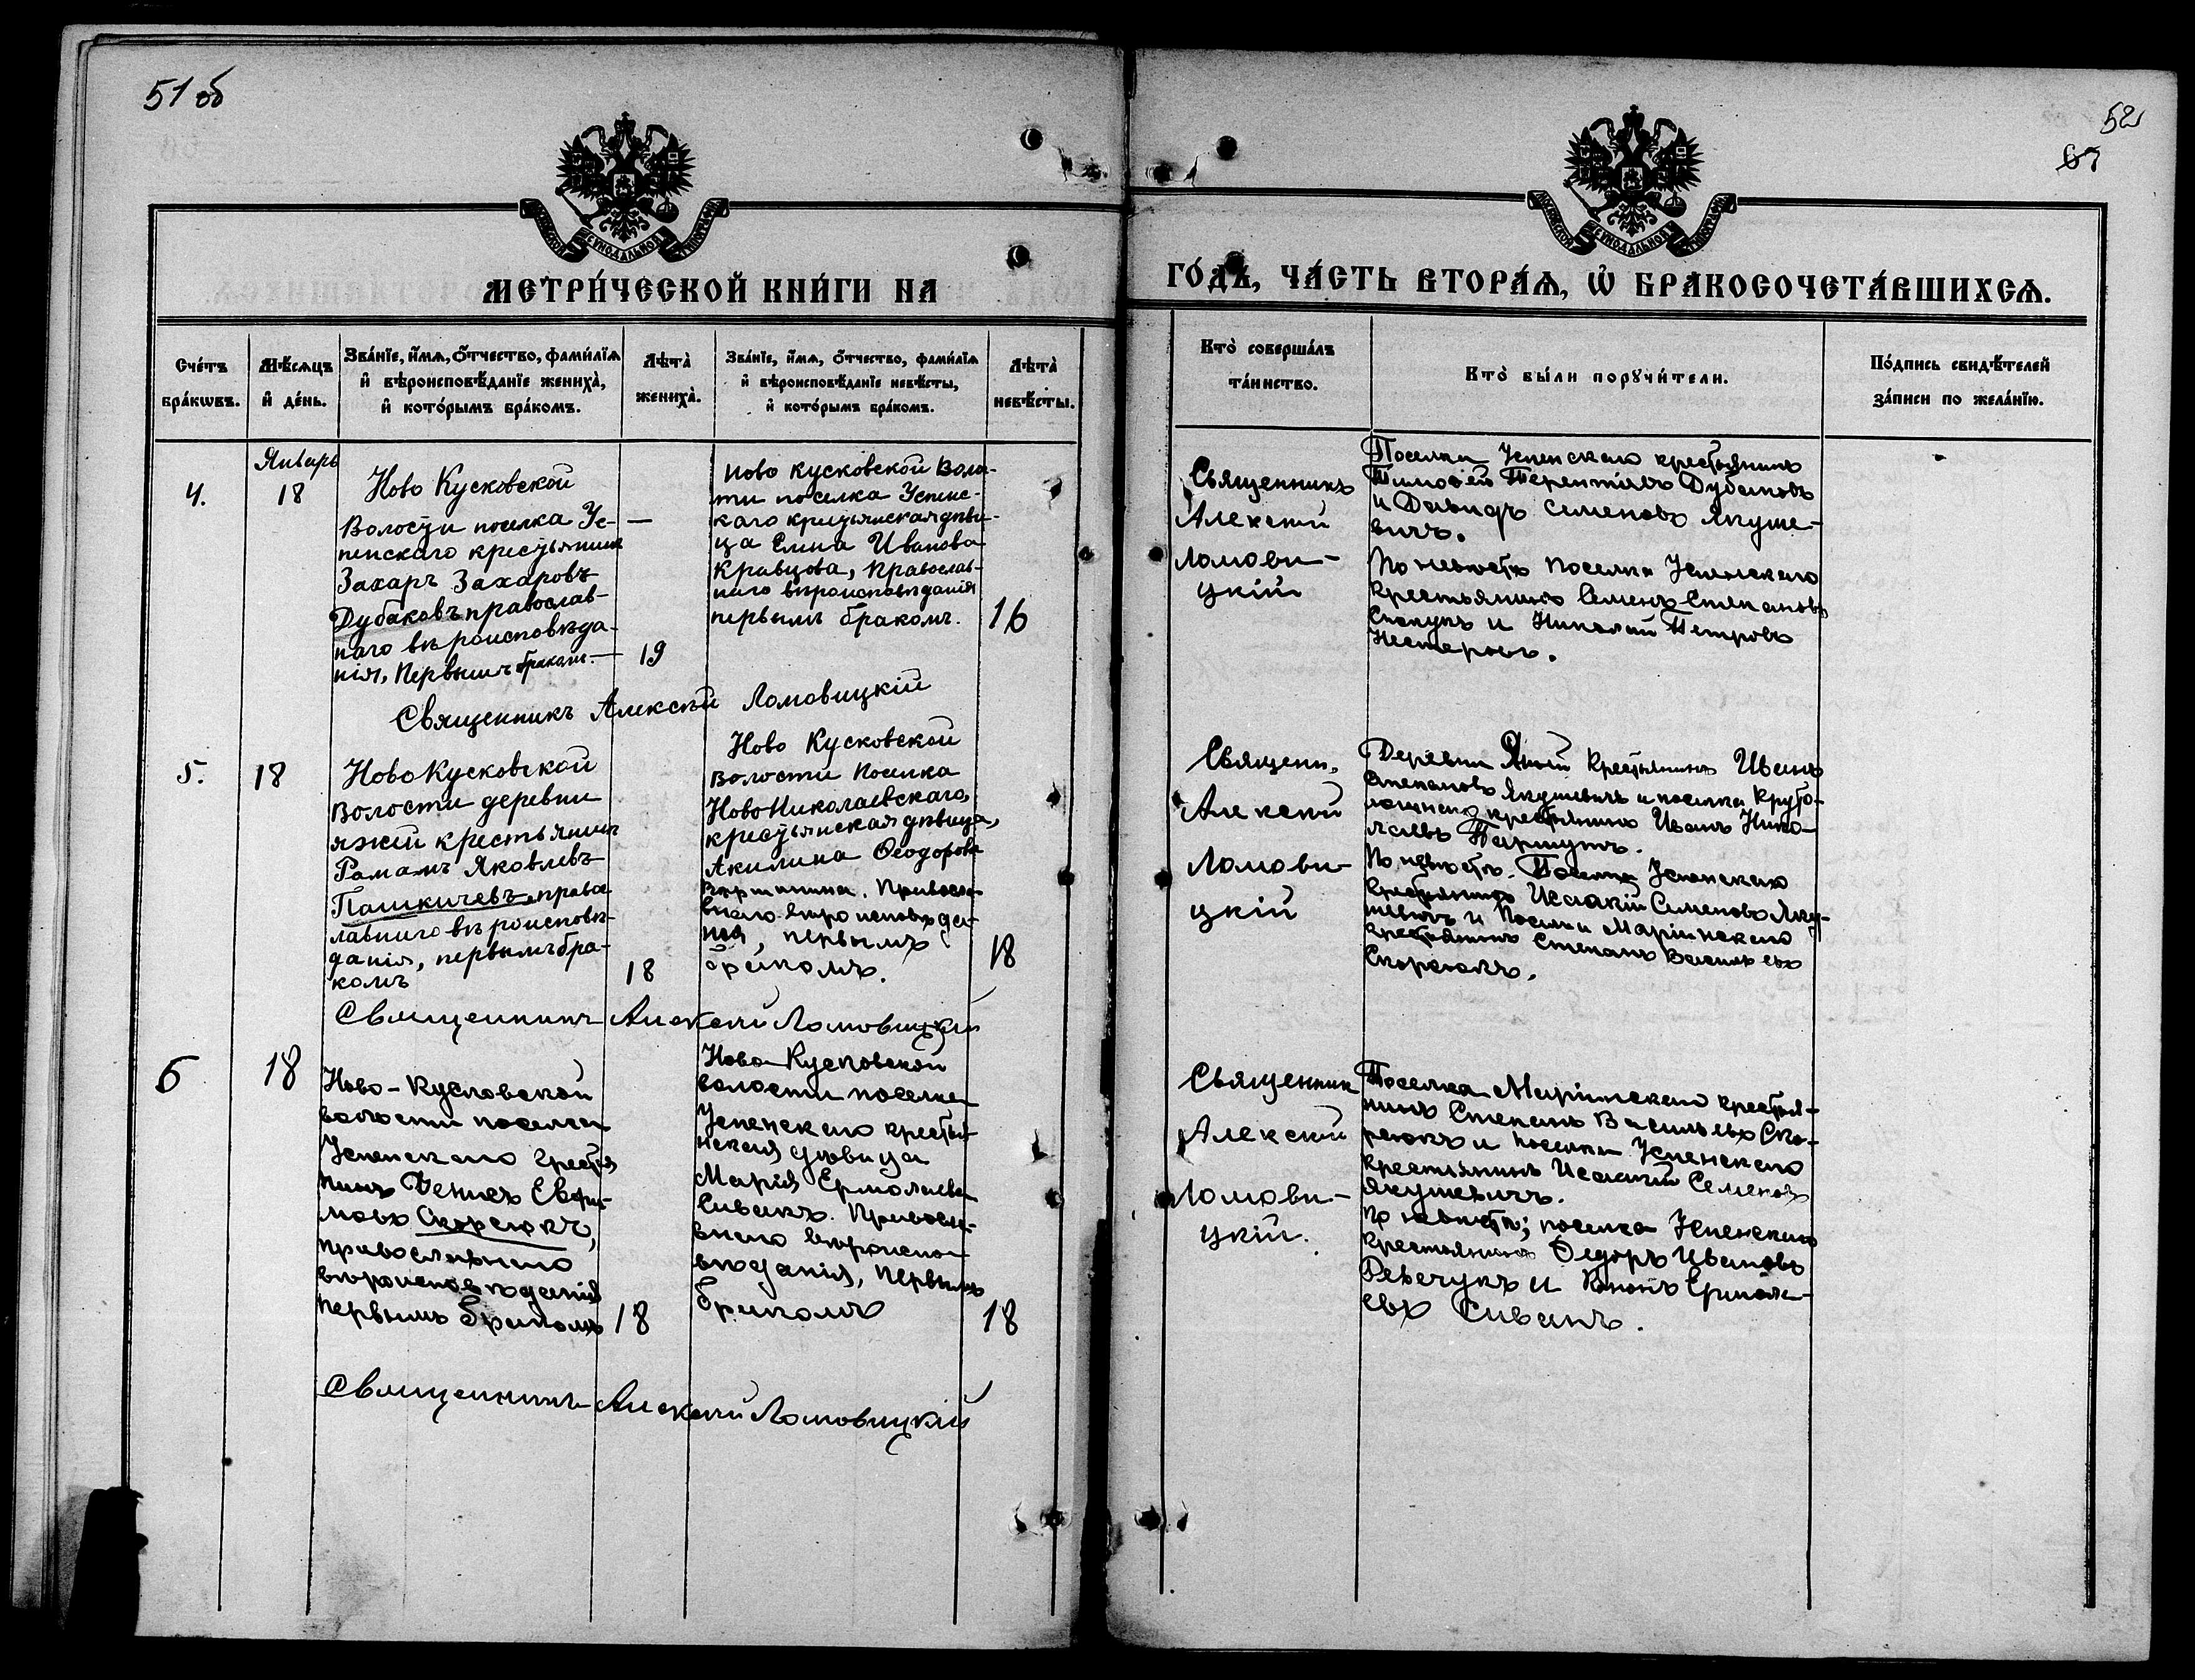 51 об
52
67
МЕТРИ́ЧЕСКОЙ КНИ́ГИ НА
ГО́ДЪ, ЧА́СТЬ ВТОРА́Ѧ, Ѽ БРАКОСОЧЕТА́ВШИХСѦ.
Сче́тъ
бра́кѡвъ.
Мѣ́сѧцъ
и҆ де́нь.
Зва́нїе, и҆́мѧ, ѻ҆́тчество, фами́лїѧ
и҆ вѣроисповѣ́данїе жениха̀,
и҆ кото́рымъ бра́комъ.
Лѣта̀
жениха̀.
Зва́нїе, и҆́мѧ, ѻ҆́тчество, фами́лїѧ
и҆ вѣроисповѣ́данїе невѣ́сты,
и҆ кото́рымъ бра́комъ.
Лѣта̀
невѣ́сты.
Кто̀ соверша́лъ
та́инство.
Кто̀ бы́ли порꙋчи́тели.
По́дпись свидѣ́телей
за́писи по жела́нїю.
Январь
4.
18
Ново Кусковской
Волости поселка Ус-
пенскаго крестьянинъ
Захаръ Захаровъ
Дубаковъ православ-
наго вѣроисповѣда-
нія, Первымъ бракомъ.
19
Ново Кусковской Воло-
сти поселка Успенс-
каго крестьянская дѣви-
ца Елена Иванова
Кравцова, Православ-
наго вѣроисповѣданія
первымъ бракомъ.
16
Священникъ
Алексѣй
Ломови-
цкій
Поселка Успенскаго крестьянинъ
Тимофей Терентіевъ Дубаковъ
и Давидъ Семеновъ Якуше-
вичъ.
По невѣстѣ поселка Успенскаго
Крестьянинъ Семенъ Степановъ
и Николай Петровъ
Нестеровъ.
Священникъ Алексѣй Ломовицкій
5.
18
Ново Кусковской
Волости деревни
яжій крестьянинъ
Романъ Яковлевъ
Пашкичевъ, право-
лавнаго вѣроисповѣ-
данія, первымъ бра-
комъ
18
Ново Кусковской
волости Поселка
Ново Николаевскаго,
крестьянская дѣвица,
Акилина Ѳеодорова
Православ-
внаго вѣроисповѣда-
нія, первымъ
бракомъ.
18
Священн.
Алексѣй
Ломови-
цкій
Деревни Яжій Крестьянинъ Иванъ
Степановъ Якушевичъ и поселка Круто-
ложнаго крестьянинъ Иванъ Нико-
лаевъ
По невѣстѣ. Поселка Успенскаго
Крестьянинъ Исаакій Семеновъ Яку-
шевичъ и Поселка Маріинскаго
крестьянинъ Степанъ Васильевъ
Скореюкъ.
Священникъ Алексѣй Ломовицкій
6
18
Ново-Кусковской
волости поселка
Успенскаго крестья
нинъ Денисъ Евфи-
мовъ Скореюкъ,
православнаго
вѣроисповѣданія
первымъ бракомъ
18
Ново-Кусковской
волости поселка
Успенскаго крестья-
нская дѣвица
Марія Ермолаева
Сивакъ. Правосла-
внаго вѣроиспо-
вѣданія, первымъ
бракомъ
18
Священник
Алексѣй
Ломови-
цкій.
Поселка Маріинскаго крестья-
нинъ Степанъ Васильевъ Ско-
реюкъ и поселка Успенскаго
крестьянинъ Исаакій Семеновъ
Якушевичъ.
По невѣстѣ; поселка Успенскаго
крестьянинъ Ѳедоръ Ивановъ
Ревечукъ и Кононъ Ермола-
евъ Сивакъ.
Священникъ Алексѣй Ломовицкій